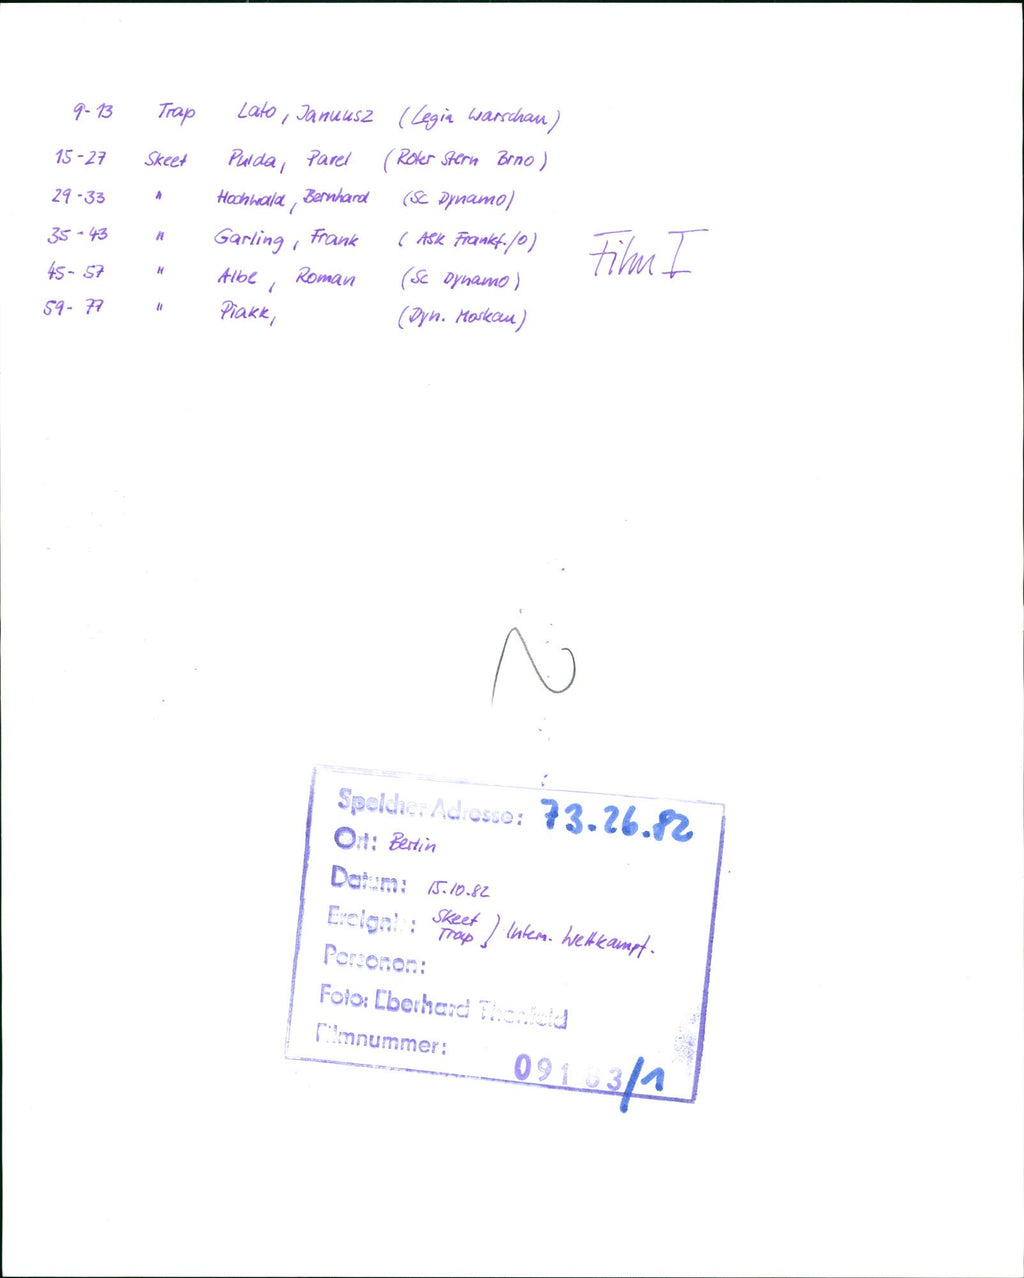 9-13 Trap Lato, Januusz (Legia Warschau)
15-27 Skeet Pulda, Pavel (Roter Stern Brno)
29-33 " Hochwald, Bernhard (SC Dynamo)
35-43 " Garling, Frank (ASK Frankf./O)
45-57 " Albe, Roman (SC Dynamo)
59-77 " Piakk, (Dyn. Moskau)
Film I
Speicher Adresse: 73.26.82
Ort: Berlin
Datum: 15.10.82
Ereignis: Skeet
Trap } Intern. Wettkampf.
Personen:
Foto: Eberhard Thonfeld
Filmnummer:
09183/1